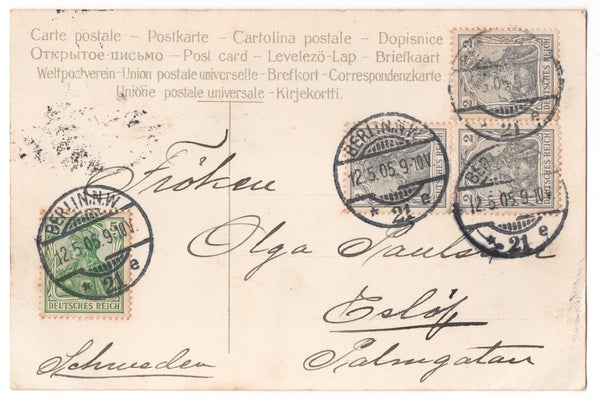 Carte postale – Postkarte – Cartolina postale – Dopisnice
Открытое письмо – Post card – Levelező-Lap – Briefkaart
Weltpostverein-Union postale universelle-Brefkort-Correspondenzkarte
Unione postale universale-Kirjekortti.
2 DEUTSCHES REICH
5.05
21
2 DEUTSCHES REICH
BERLIN.N.W.
12.5.05.9-10V.
* 21 e
2 DEUTSCHES REICH
12.5.05.9-10V.
* 21 e
Fröken
BERLIN.N.W.
12.5.05.9-10V.
* 21 e
DEUTSCHES REICH
Olga
Eslöf
Schweden
Palmgatan